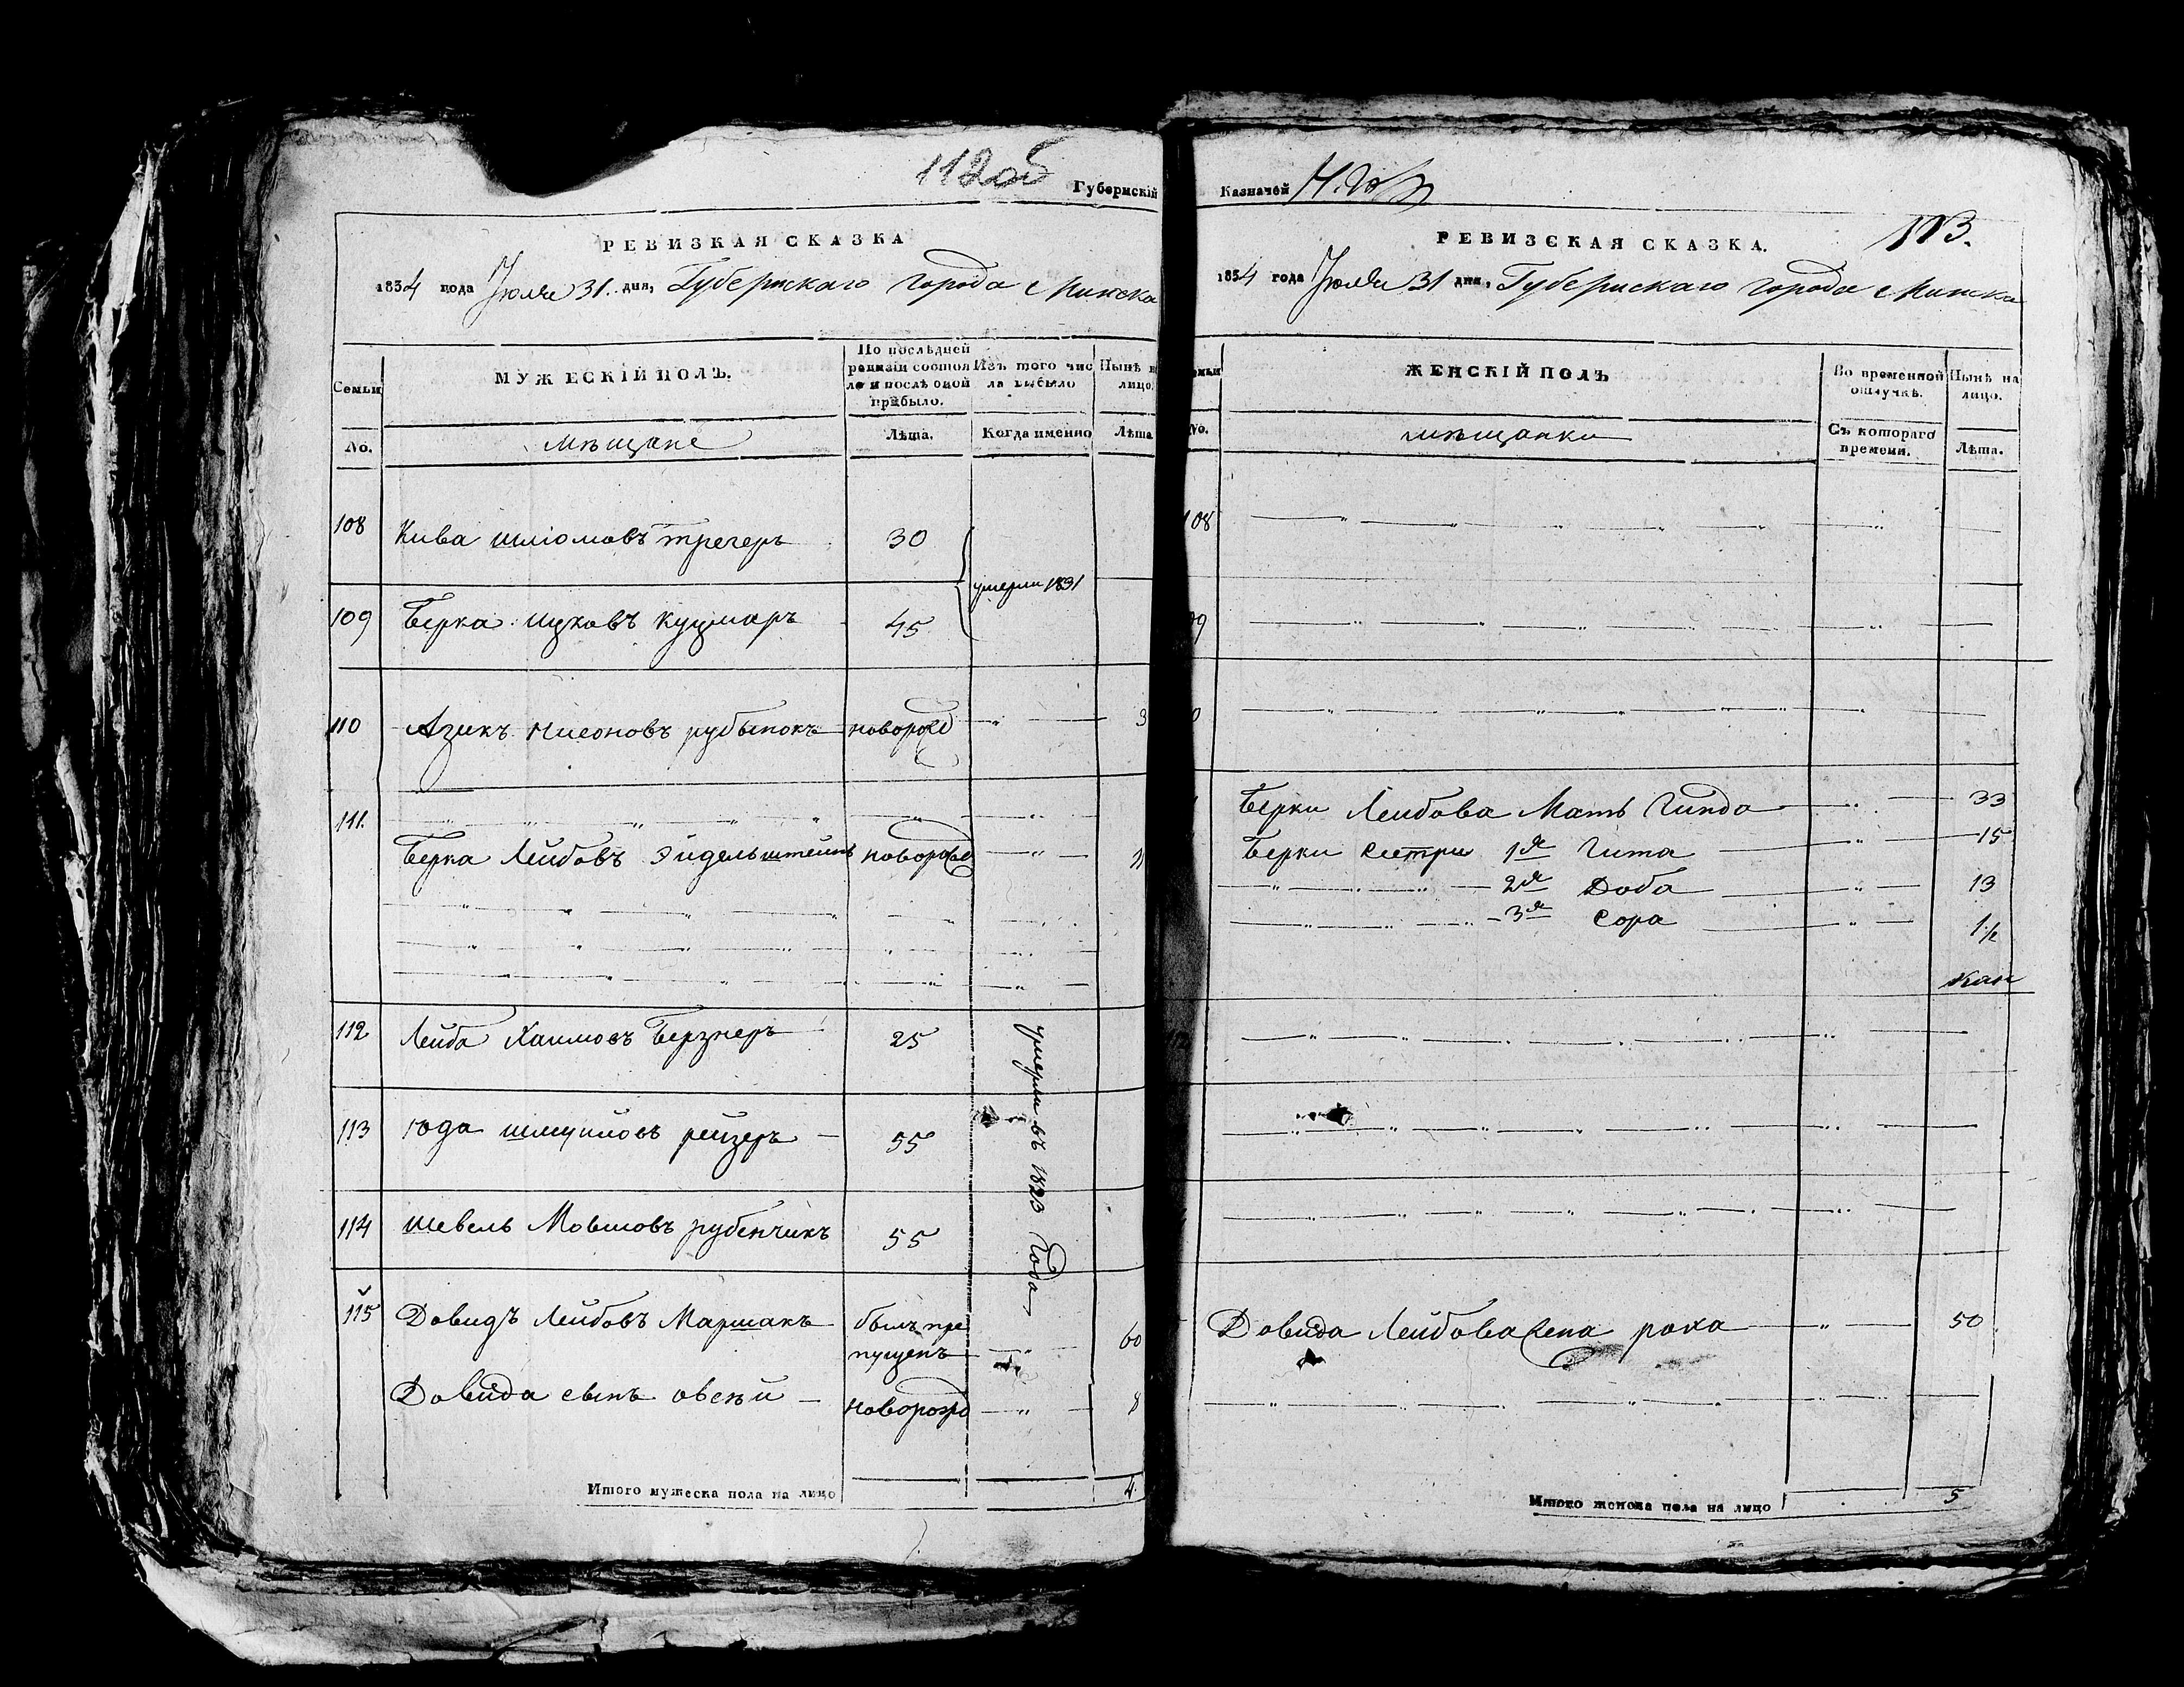 112об
Губернскій
РЕВИЗКАЯ СКАЗКА
1834 года Июля 31. дня, Губернскаго города Минска
Семьи
МУЖЕСКІЙ ПОЛЪ.
По послѣдней ревизіи состоя ло и послѣ оной прибыло.
Изъ того чис ла выбыло
Нынѣ н лицо.
No.
мѣщане
Лѣта.
Когда именно
Лѣта
108 Кива шліомовъ тречеръ 30
умерли 1831
109 Берка ицковъ куцмаръ 45
110 Азикъ Нисоновъ рубынокъ новорожд 3
111.
Берка Лейбовъ Эйдельштейнъ новорожд 11
112 Лейба Хаимовъ Берзнеръ 25
умерли въ 1823 года
113 Юда шмуйловъ рейзеръ 55
114 шевель Мовшовъ рубенчикъ 55
115 Довидъ Лейбовъ Маршакъ былъ пре 60
пущенъ
Довида сынъ овсѣй новорожд 8
Итого мужеска пола на лицо 4
Казначей
113.
РЕВИЗСКАЯ СКАЗКА.
1834 года Июля 31 дня, Губернскаго города Минска
мьи
ЖЕНСКІЙ ПОЛЪ
Во временной отлучкѣ.
Нынѣ на лицо.
No.
мѣщанки
Съ котораго времени.
Лѣта.
108
09
0
Берки Лейбова Мать Гинда 33
Берки сестры 1я Гита 15
2я Доба 13
3я Сора 1 1/2
Довида Лейбова жена роха 50
Итого женска пола на лицо 5